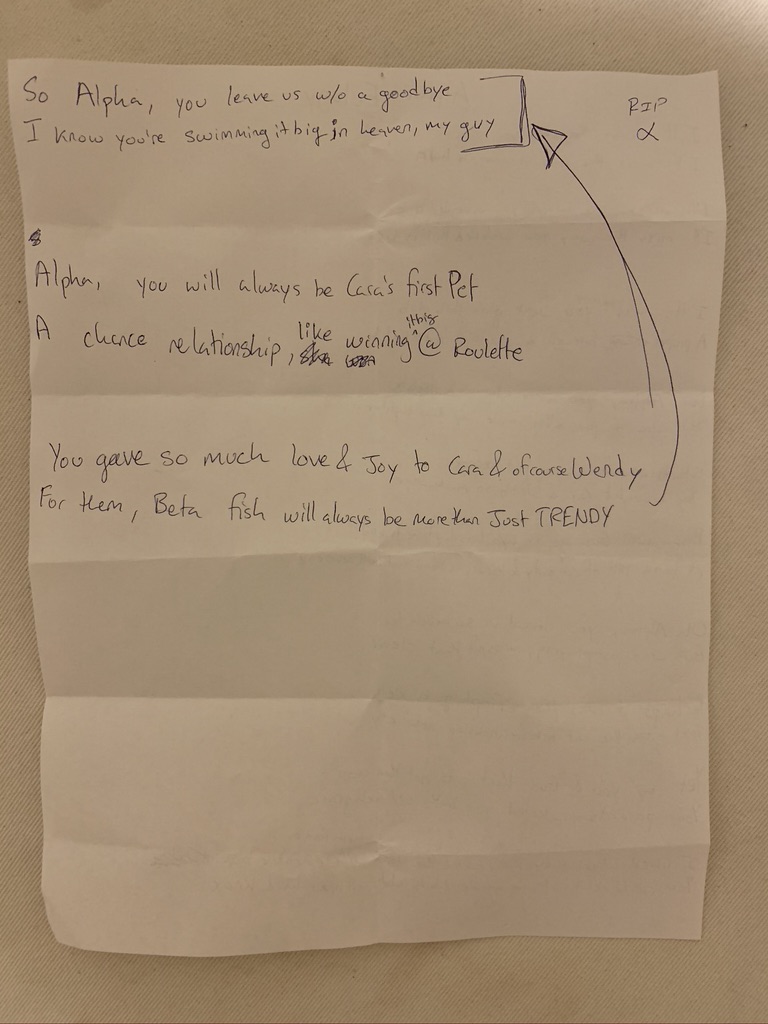 So Alpha, you leave us w/o a goodbye
I know you're swimming it big in heaven, my guy
RIP
α
Alpha, you will always be Cara's first Pet
A chance relationship, like winning it big @ Roulette
You gave so much love & Joy to Cara & ofcourse Wendy
For them, Beta fish will always be more than Just TRENDY